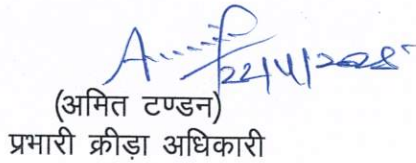 22/4/2025
(अमित टण्डन)
प्रभारी क्रीड़ा अधिकारी